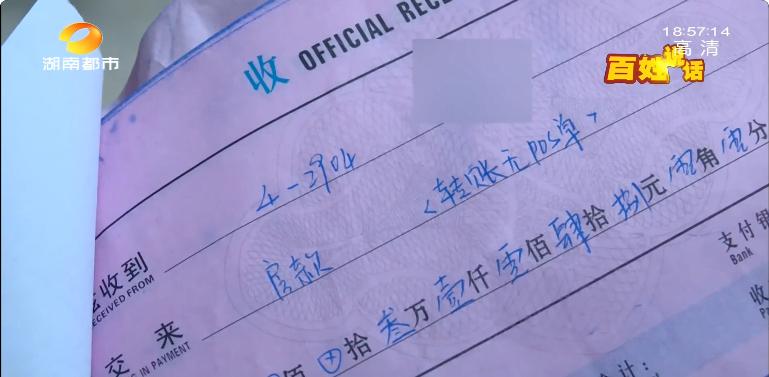 湖南都市
18:57:14
高清
百姓说话
收 OFFICIAL RECE
4-2904 <转账无POS单>
收到
RECEIVED FROM
房款
交来
IN PAYMENT
佰⊕拾叁万壹仟零佰肆拾捌元零角零分
支付银
Bank
收
计: